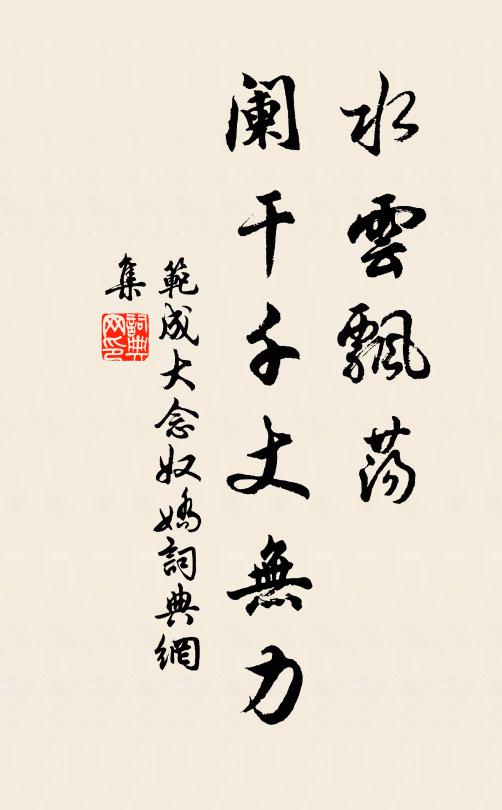 水雲飄荡
阑干千丈無力
範成大念奴嬌詞典網
集
詞典
网印